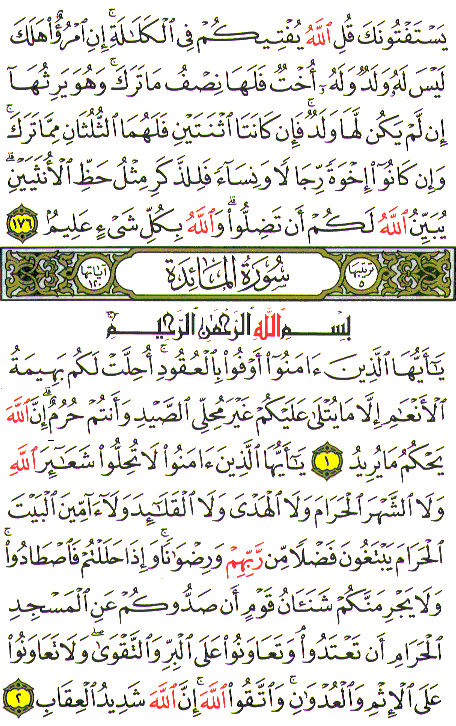 يَسْتَفْتُونَكَ قُلِ اللَّهُ يُفْتِيكُمْ فِى الْكَلَٰلَةِ ۚ إِنِ امْرُؤٌا۟ هَلَكَ
لَيْسَ لَهُۥ وَلَدٌ وَلَهُۥٓ أُخْتٌ فَلَهَا نِصْفُ مَا تَرَكَ ۚ وَهُوَ يَرِثُهَآ
إِن لَّمْ يَكُن لَّهَا وَلَدٌ ۚ فَإِن كَانَتَا اثْنَتَيْنِ فَلَهُمَا الثُّلُثَانِ مِمَّا تَرَكَ ۚ
وَإِن كَانُوٓا۟ إِخْوَةً رِّجَالًا وَنِسَآءً فَلِلذَّكَرِ مِثْلُ حَظِّ الْأُنثَيَيْنِ ۗ
يُبَيِّنُ اللَّهُ لَكُمْ أَن تَضِلُّوا۟ ۗ وَاللَّهُ بِكُلِّ شَىْءٍ عَلِيمٌۢ ١٧٦
ترتيبها ٥ سُورَةُ المَائِدَة آياتها ١٢٠
بِسْمِ اللَّهِ الرَّحْمَٰنِ الرَّحِيمِ
يَٰٓأَيُّهَا الَّذِينَ ءَامَنُوٓا۟ أَوْفُوا۟ بِالْعُقُودِ ۚ أُحِلَّتْ لَكُم بَهِيمَةُ
الْأَنْعَٰمِ إِلَّا مَا يُتْلَىٰ عَلَيْكُمْ غَيْرَ مُحِلِّى الصَّيْدِ وَأَنتُمْ حُرُمٌ ۗ إِنَّ اللَّهَ
يَحْكُمُ مَا يُرِيدُ ١ يَٰٓأَيُّهَا الَّذِينَ ءَامَنُوا۟ لَا تُحِلُّوا۟ شَعَٰٓئِرَ اللَّهِ
وَلَا الشَّهْرَ الْحَرَامَ وَلَا الْهَدْىَ وَلَا الْقَلَٰٓئِدَ وَلَآ ءَآمِّينَ الْبَيْتَ
الْحَرَامَ يَبْتَغُونَ فَضْلًا مِّن رَّبِّهِمْ وَرِضْوَٰنًا ۚ وَإِذَا حَلَلْتُمْ فَاصْطَادُوا۟ ۚ
وَلَا يَجْرِمَنَّكُمْ شَنَـَٔانُ قَوْمٍ أَن صَدُّوكُمْ عَنِ الْمَسْجِدِ
الْحَرَامِ أَن تَعْتَدُوا۟ ۘ وَتَعَاوَنُوا۟ عَلَى الْبِرِّ وَالتَّقْوَىٰ ۖ وَلَا تَعَاوَنُوا۟
عَلَى الْإِثْمِ وَالْعُدْوَٰنِ ۚ وَاتَّقُوا۟ اللَّهَ ۖ إِنَّ اللَّهَ شَدِيدُ الْعِقَابِ ٢